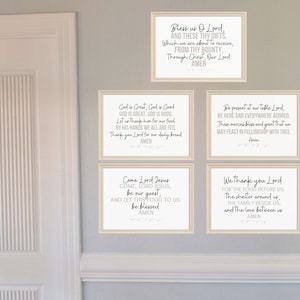 Bless us O Lord,
AND THESE THY GIFTS,
Which we are about to receive,
FROM THY BOUNTY,
Through Christ, Our Lord
AMEN
God is Great, God is Good
GOD IS GREAT, GOD IS GOOD,
Let us thank him for our food
BY HIS HANDS WE ALL ARE FED,
Thank you Lord for our daily bread
AMEN
Be present at our table Lord,
BE HERE AND EVERYWHERE ADORED,
These mercies bless and grant that we
MAY FEAST IN FELLOWSHIP WITH THEE.
Amen
Come Lord Jesus
COME, LORD JESUS,
be our guest,
AND LET THIS FOOD TO US
be blessed
AMEN
We thank you Lord
FOR THE FOOD BEFORE US,
the shelter around us,
THE FAMILY BESIDE US,
and the love between us
AMEN